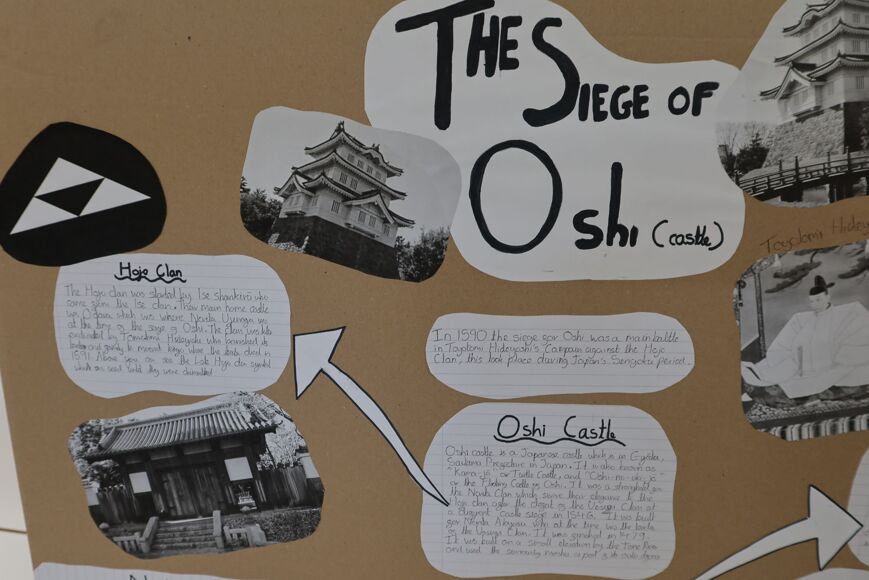 THE
SIEGE OF
Oshi (castle)
Toyotomi Hideyo
Hojo Clan
The Hojo clan was started by Ise Shinkuro who
came from the Ise clan. Their main home castle
was Odawara which was where Narita Ujinaga was
at the time of the siege of Oshi. The clan was
by Toyotomi Hideyoshi who banished its
and family to mount Koya where the
1591. Above you can see the Late Hojo clan symbol
which was used until they were
In 1590 the siege gor Oshi was a main battle
in Toyotomi Hideyoshi's Campaign against the Hojo
Clan, this took place during Japan's Sengoku Period.
Oshi Castle
Oshi castle is a Japanese castle which is in Gyōda,
Saitama Prefecture in Japan. It is also known as
"Kame-jō" or Turtle Castle, and "Oshi-no-uki-jo"
or the Floating Castle og Oshi. It was a stronghold gor
the Narita Clan which swore their allegiance to the
Hojo clan after the defeat og the Uesugi Clan at
a Castle siege in 1546. It was built
gor Narita Akiyasu who at the time was the
to the Uesugi Clan. It was ginished in 1479.
It was built on a small elevation by the Tone River
and used the marsh as part og its